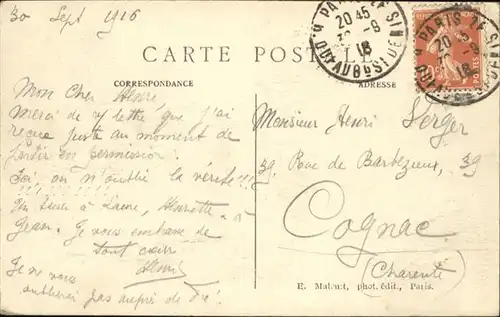 30 Sept 1916
CARTE POSTALE
CORRESPONDANCE
ADRESSE
PARIS
20 45
30-8
18
PARIS
POSTES
Mon Cher Henri,
Merci de ta lettre que j'ai
reçue juste au moment de
partir en permission.
on n'oublie la vérité!!!
à Laure, Henriette &
Jean. Je vous embrasse de
tout cœur
Henri
Je ne vous
oublierai pas auprès de
Monsieur Henri Verger
39 Rue de Barbezieux, 39
Cognac
(Charente)
E. Malcuit, phot. édit., Paris.